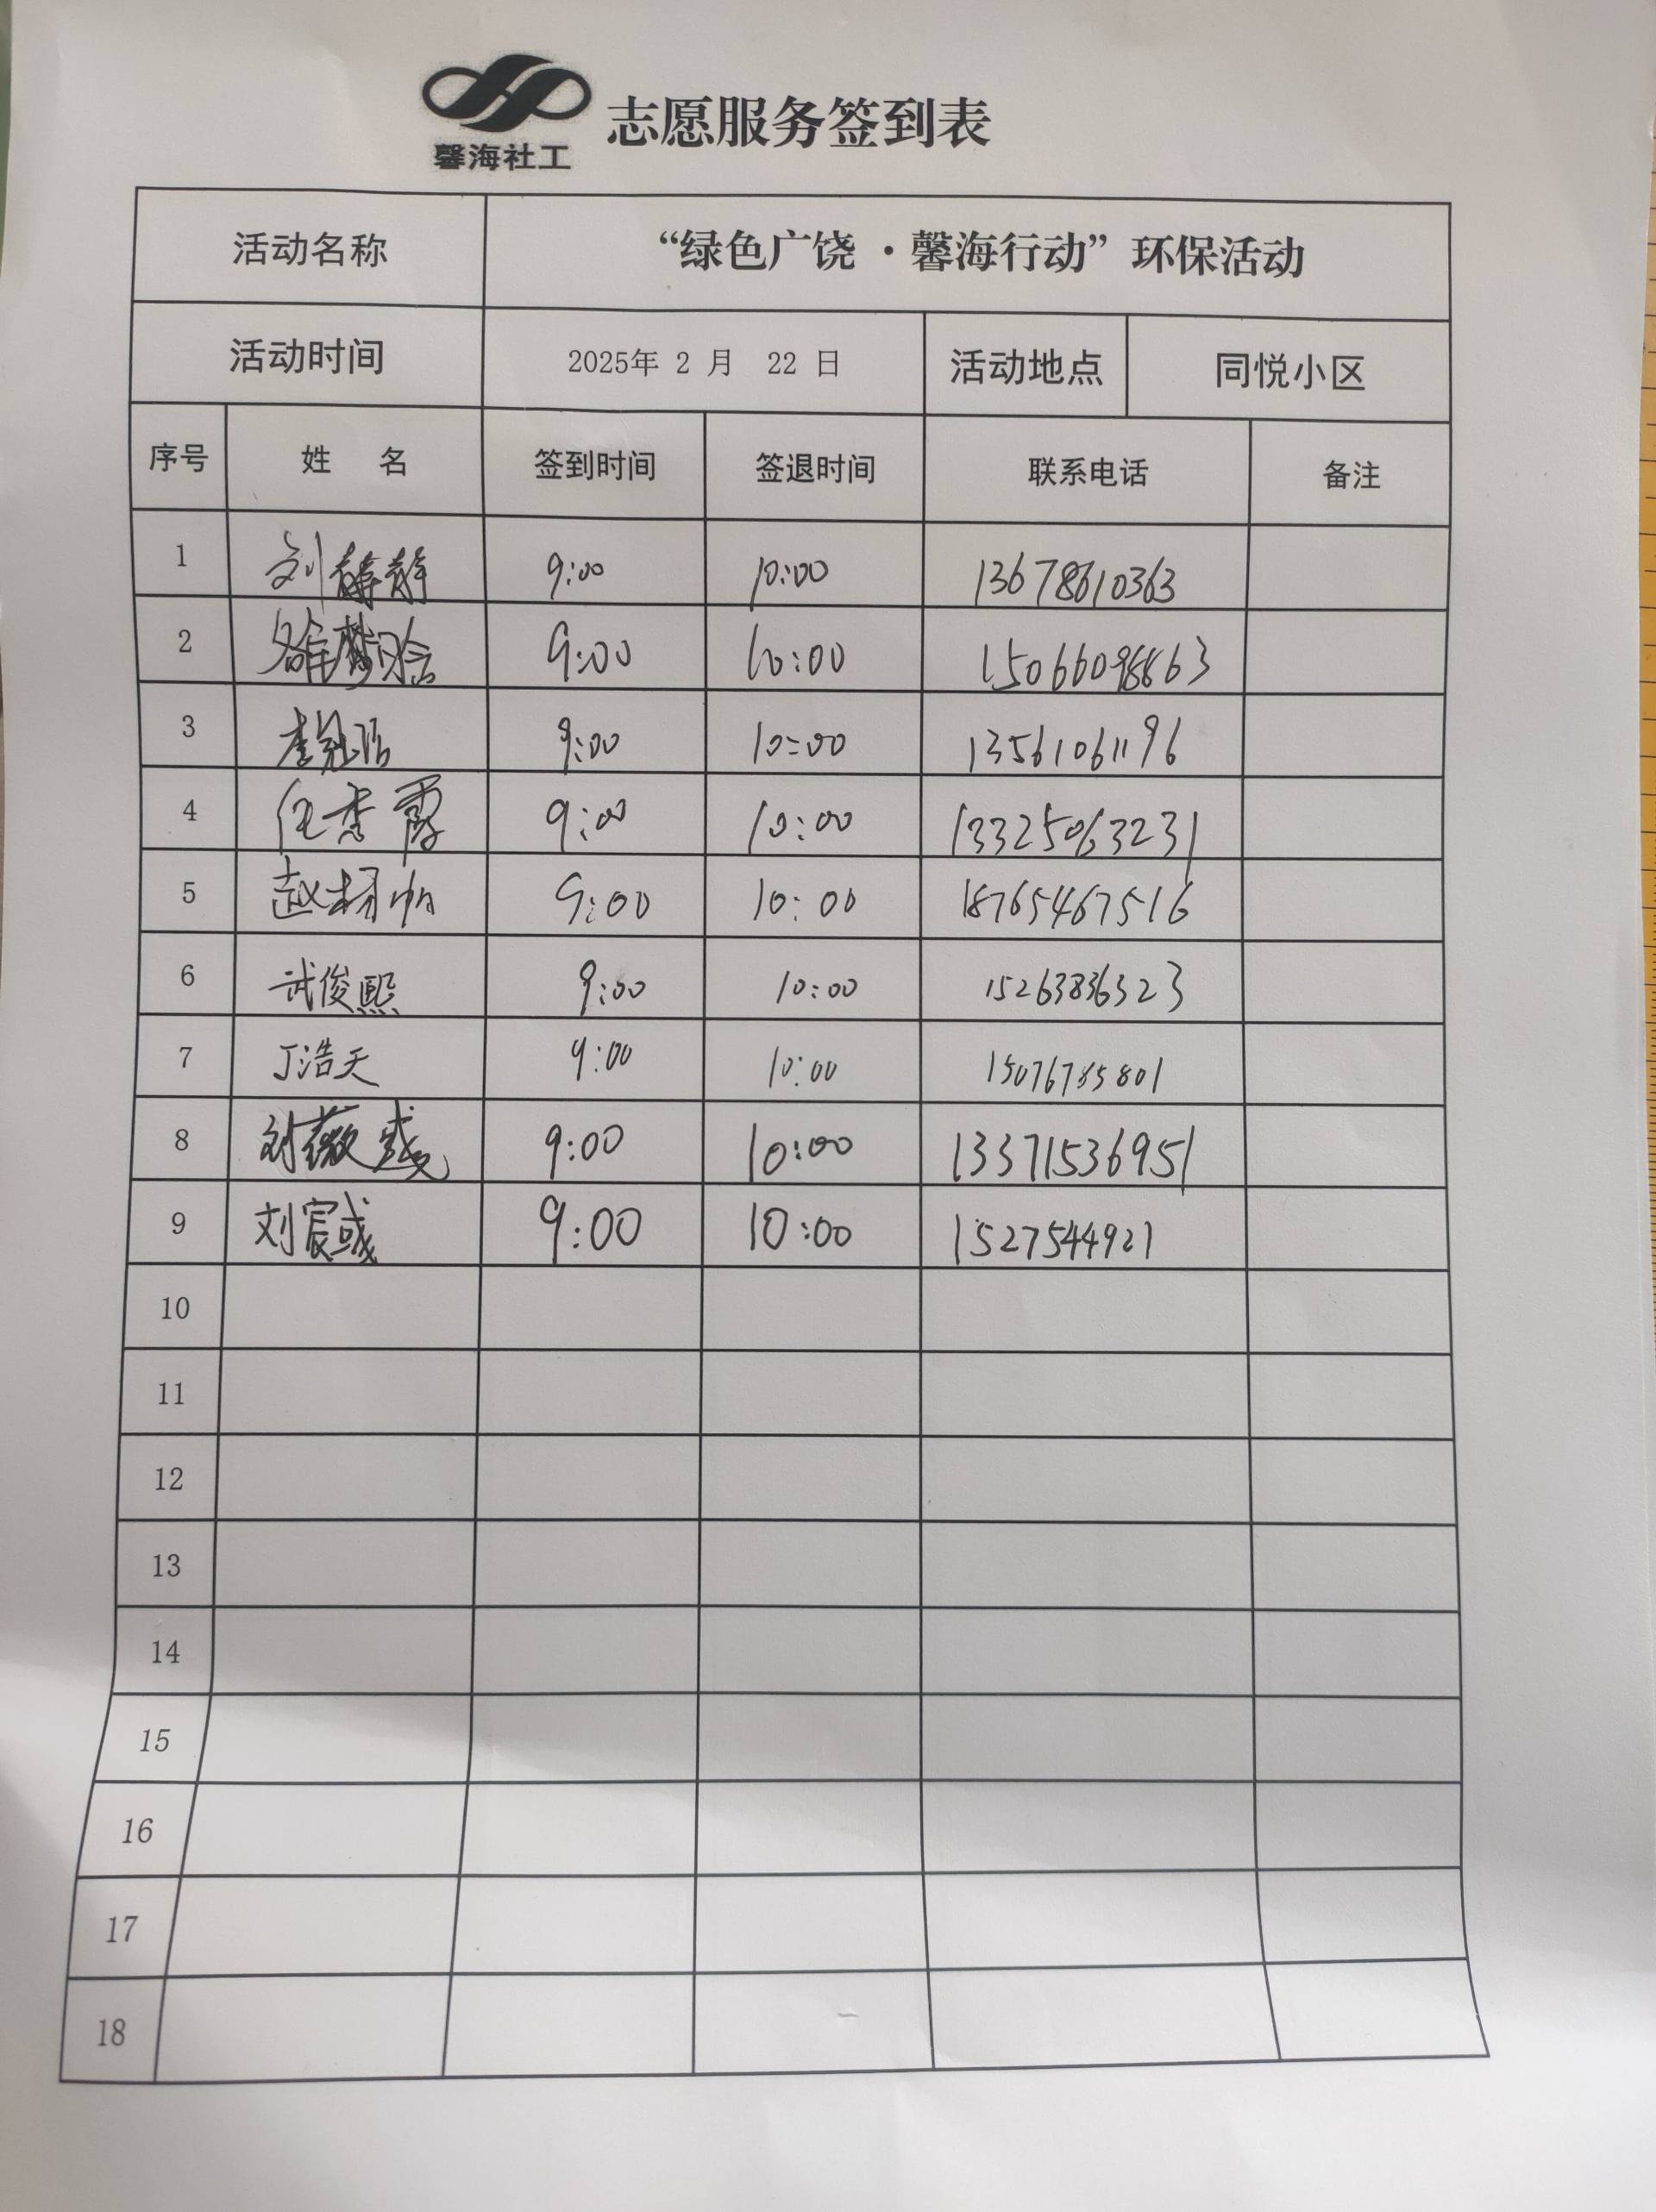 馨海社工
志愿服务签到表
活动名称 “绿色广饶 · 馨海行动”环保活动
活动时间 2025年 2 月 22 日 活动地点 同悦小区
序号 姓 名 签到时间 签退时间 联系电话 备注
1 刘静静 9:00 10:00 13678610363
2 9:00 10:00 15066098863
3 9:00 10:00 13561061196
4 任秀霞 9:00 10:00 13325063231
5 赵杨帆 9:00 10:00 18765467516
6 武俊熙 9:00 10:00 15263836323
7 丁浩天 9:00 10:00 15076785801
8 9:00 10:00 13371536951
9 刘宸彧 9:00 10:00 1527544921
10
11
12
13
14
15
16
17
18